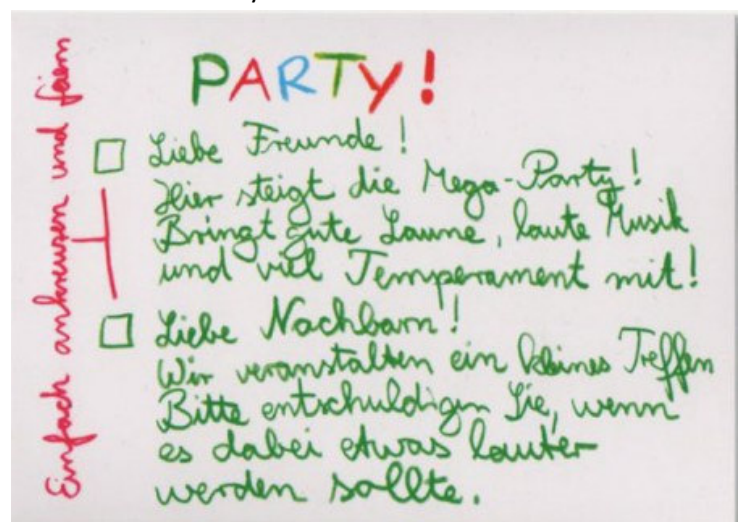 PARTY!
Einfach ankreuzen und feiern
Liebe Freunde!
Hier steigt die Mega-Party!
Bringt gute Laune, laute Musik
und viel Temperament mit!
Liebe Nachbarn!
Wir veranstalten ein kleines Treffen
Bitte entschuldigen Sie, wenn
es dabei etwas lauter
werden sollte.